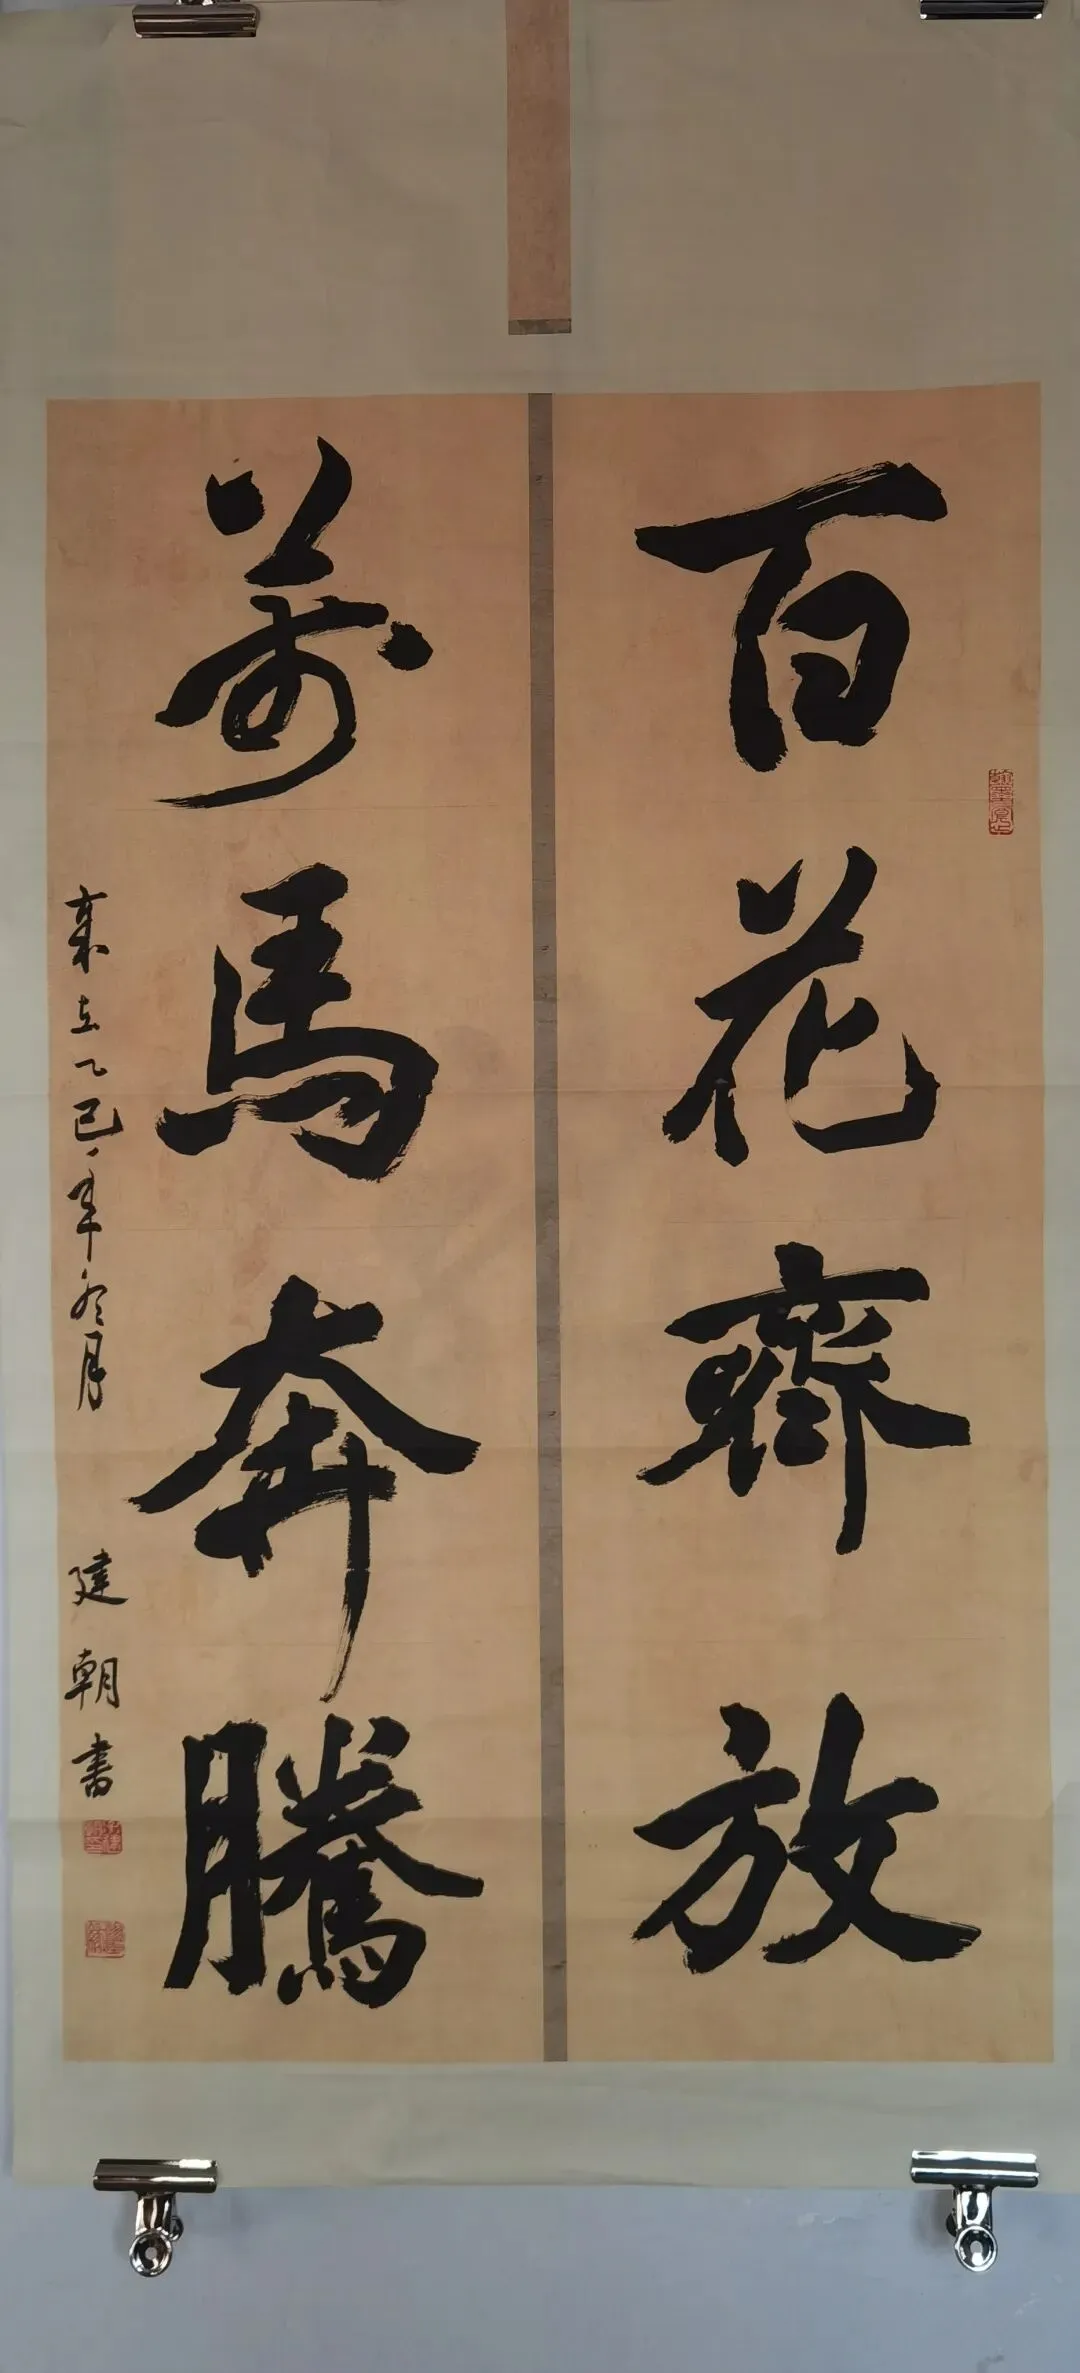 百花齊放
萬馬奔騰
歲在乙巳年冬月
建朝書